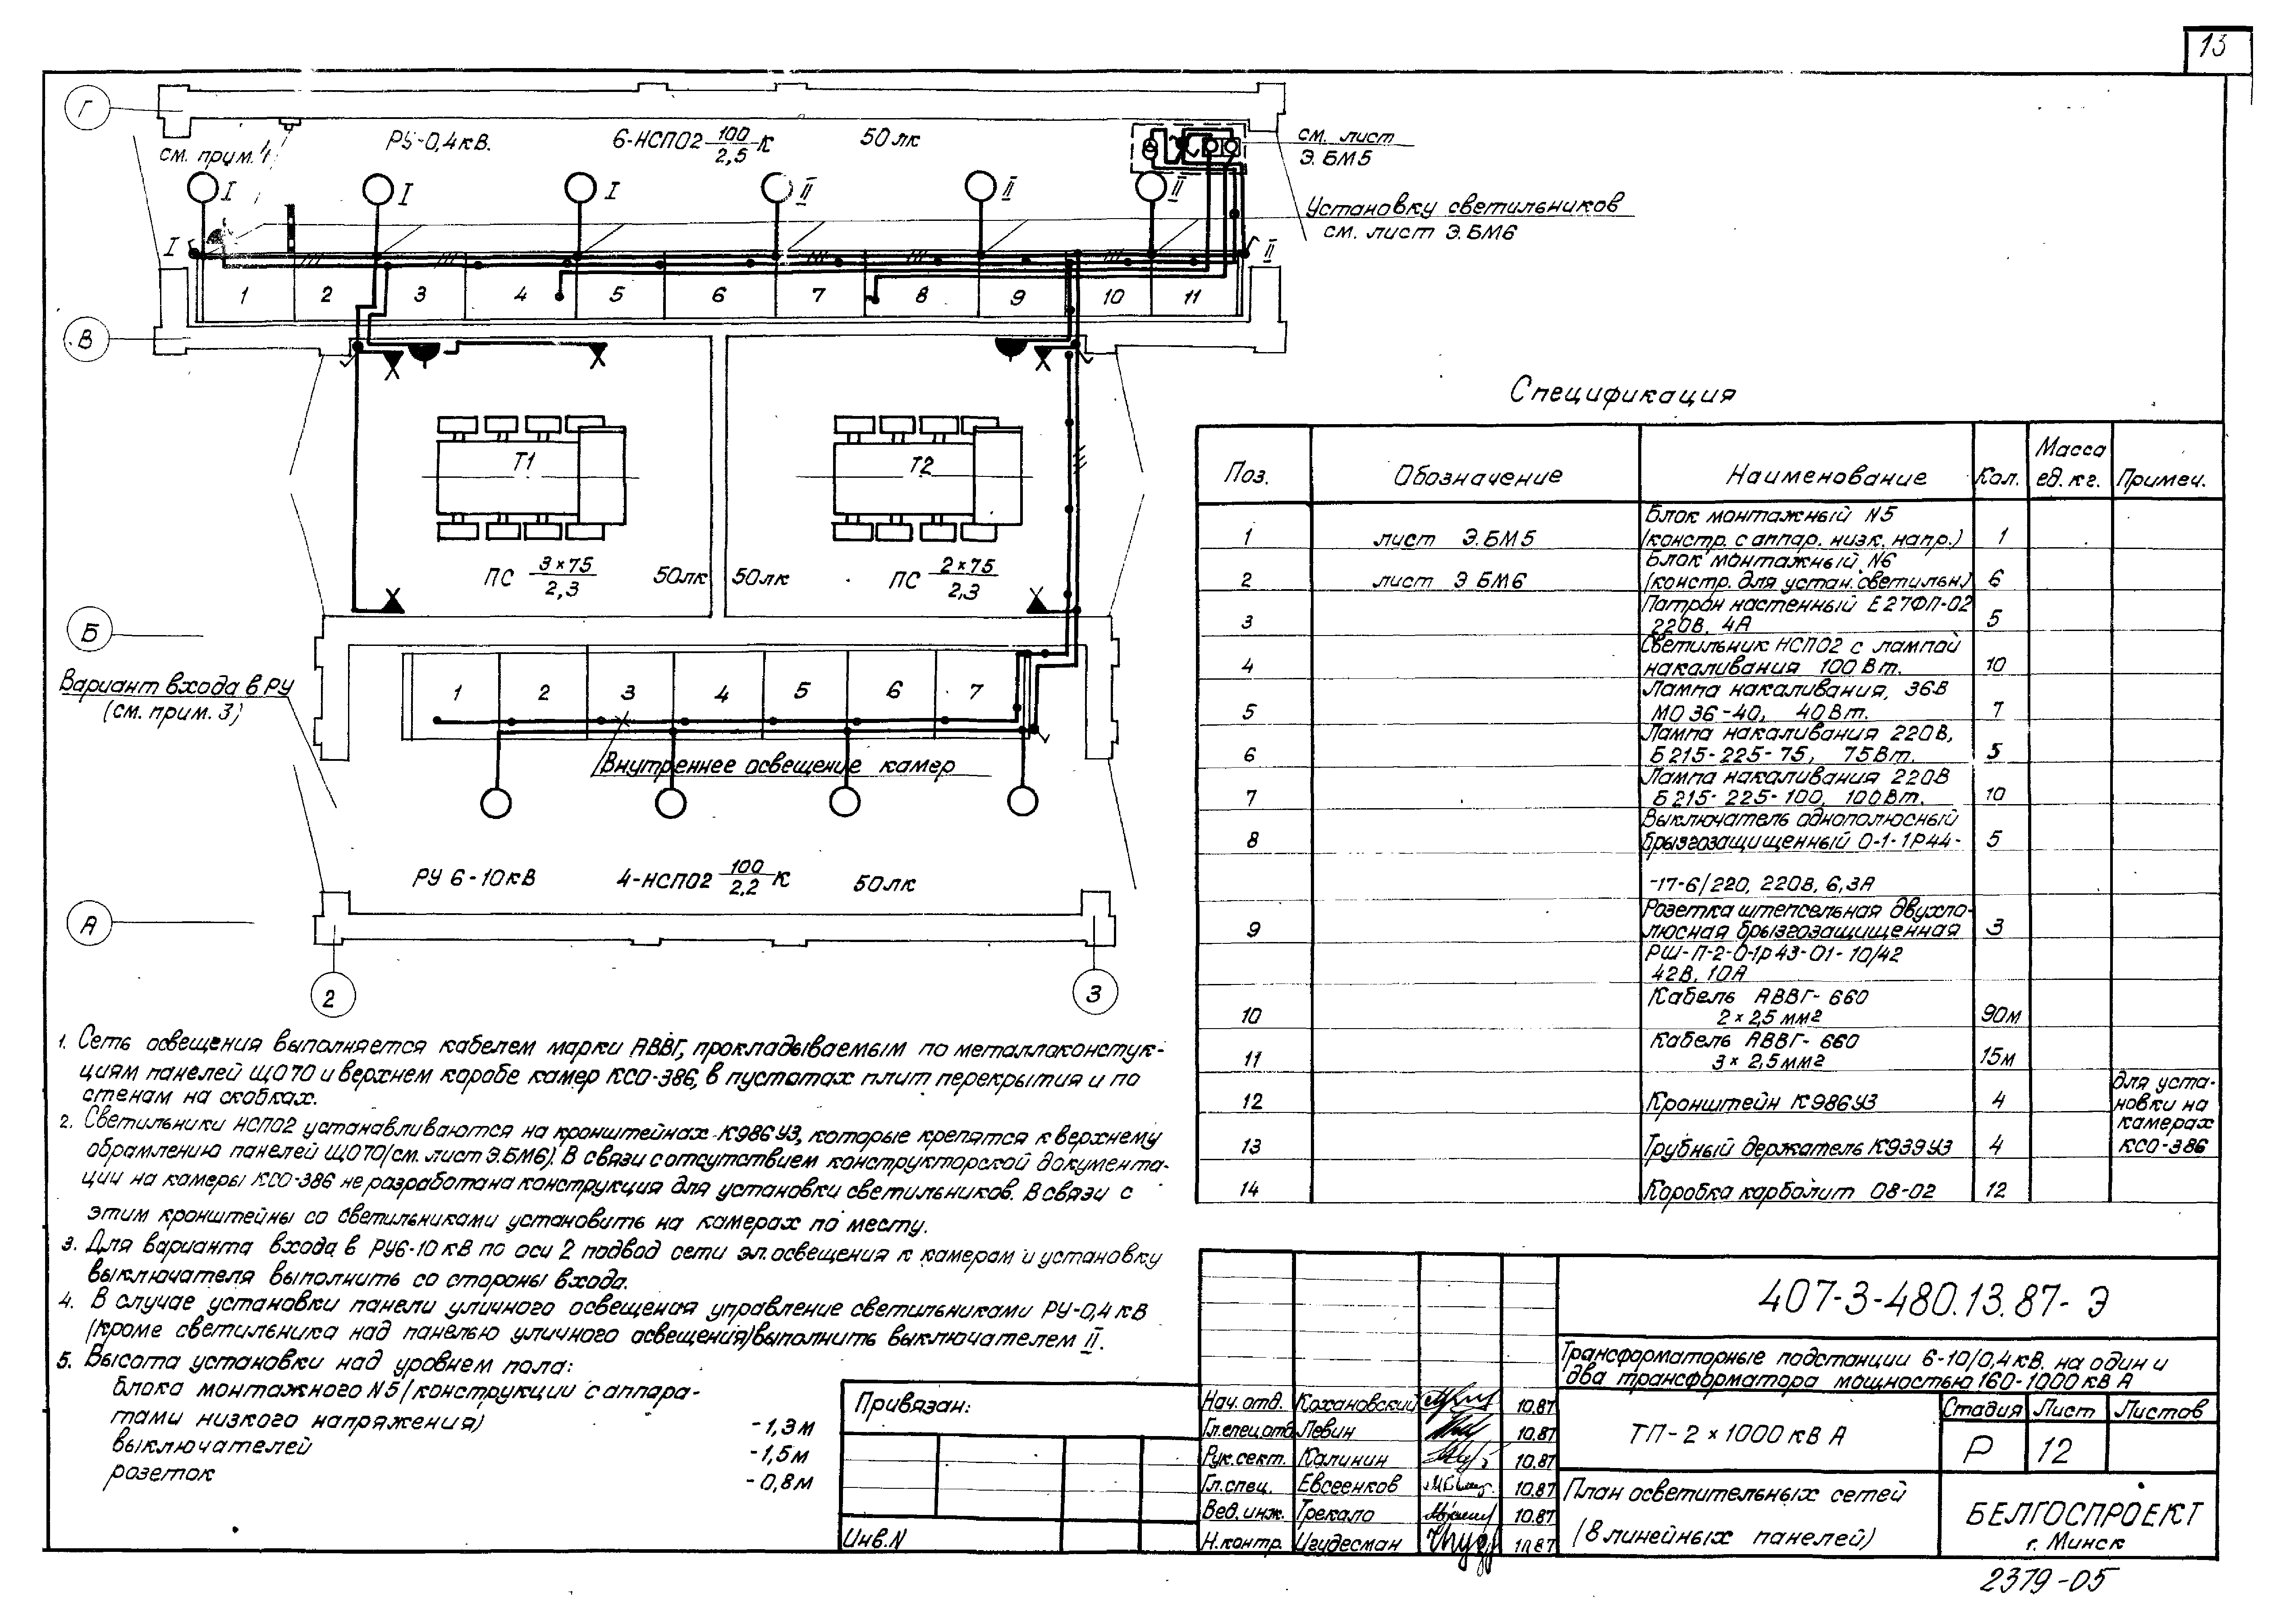 13
Г
см. прим. 4
РУ-0,4кВ.
6-НСП02 100/2,5 К
50лк
см. лист
Э.БМ5
I
I
I
II
II
II
Установку светильников
см. лист Э.БМ6
I
II
1 2 3 4 5 6 7 8 9 10 11
В
Т1
Т2
ПС 3×75/2,3
50лк
50лк
ПС 2×75/2,3
Б
Вариант входа в РУ
(см. прим. 3)
1 2 3 4 5 6 7
Внутреннее освещение камер
РУ 6-10кВ
4-НСП02 100/2,2 К
50лк
А
2
3
Спецификация
Поз. Обозначение Наименование Кол. Масса ед. кг. Примеч.
1 лист Э.БМ5 Блок монтажный N5
(констр. с аппар. низк. напр.) 1
2 лист Э БМ6 Блок монтажный N6
(констр. для устан. светильн.) 6
3 Патрон настенный Е27ФП-02
220В, 4А 5
4 Светильник НСП02 с лампой
накаливания 100Вт. 10
5 Лампа накаливания, 36В
МО 36-40, 40Вт. 7
6 Лампа накаливания 220В,
Б215-225-75, 75Вт. 5
7 Лампа накаливания 220В
Б215-225-100, 100Вт. 10
8 Выключатель однополюсный
брызгозащищенный 0-1-1Р44- 5
-17-6/220, 220В, 6,3А
9 Розетка штепсельная двухпо-
люсная брызгозащищенная 3
РШ-П-2-0-1р43-01-10/42
42В, 10А
10 Кабель АВВГ-660
2×2,5мм2 90м
11 Кабель АВВГ-660
3×2,5мм2 15м
12 Кронштейн К986У3 4
13 Трубный держатель К939У3 4
для уста-
новки на
камерах
КСО-386
14 Коробка карболит 08-02 12
1. Сеть освещения выполняется кабелем марки АВВГ, прокладываемым по металлоконстук-
циям панелей ЩО70 и верхнем коробе камер КСО-386, в пустотах плит перекрытия и по
стенам на скобках.
2. Светильники НСП02 устанавливаются на кронштейнах К986У3, которые крепятся к верхнему
обрамлению панелей ЩО70 (см. лист Э.БМ6). В связи с отсутствием конструкторской документа-
ции на камеры КСО-386 не разработана конструкция для установки светильников. В связи с
этим кронштейны со светильниками установить на камерах по месту.
3. Для варианта входа в РУ6-10кВ по оси 2 подвод сети эл.освещения к камерам и установку
выключателя выполнить со стороны входа.
4. В случае установки панели уличного освещения управление светильниками РУ-0,4кВ
(кроме светильника над панелью уличного освещения) выполнить выключателем II.
5. Высота установки над уровнем пола:
блока монтажного N5 (конструкции с аппара-
тами низкого напряжения) -1,3м
выключателей -1,5м
розеток -0,8м
Привязан:
Инв.N
407-3-480.13.87-Э
Трансформаторные подстанции 6-10/0,4кВ. на один и
два трансформатора мощностью 160-1000кВА
Нач. отд. Кохановский 10.87
Гл.спец.отд Левин 10.87
Рук.сект. Калинин 10.87
Гл.спец. Евсеенков 10.87
Вед.инж. Трекало 10.87
Н.контр. Цгудесман 10.87
ТП-2×1000кВА
Стадия Лист Листов
Р 12
План осветительных сетей
(8 линейных панелей)
БЕЛГОСПРОЕКТ
г. Минск
2379-05